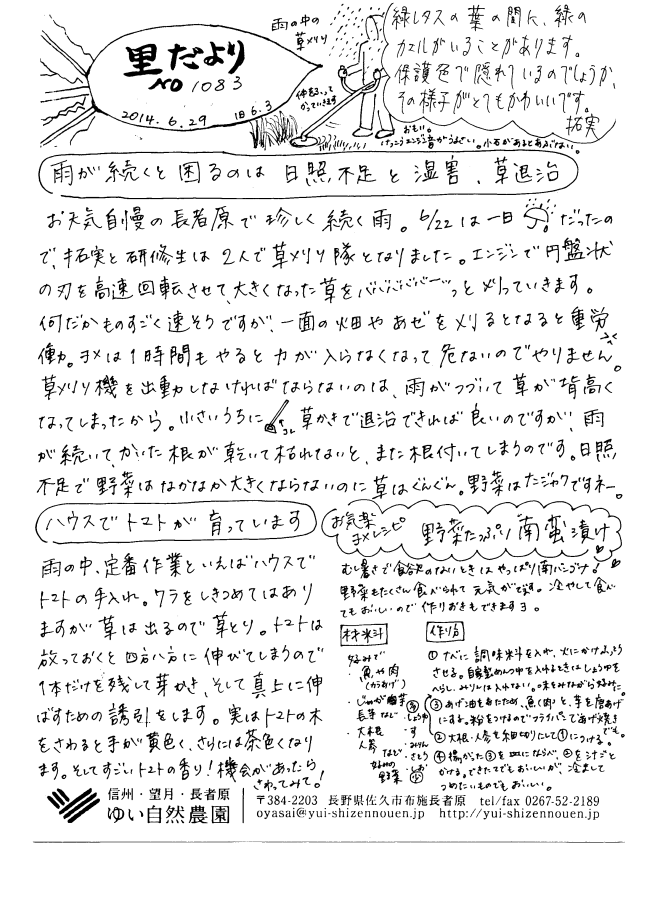 里だより
NO 1083
2014.6.29 旧6.3
雨の中の
草メリリ
緑レタスの葉の間に、緑の
カエルがいることがあります。
保護色で隠れているのでしょうか、
その様子がとてもかわいいです。
拓実
おもい。
けっこうエンジン音がうるさい。小石があるとあぶない。
雨が続くと困るのは 日照不足と湿害、草退治
お天気自慢の長者原で珍しく続く雨。6/22は一日 だったの
で、拓実と研修生は2人で草刈り隊となりました。エンジンで円盤状
の刃を高速回転させて、大きくなった草をバババババーッと刈っていきます。
何だかものすごく速そうですが、一面の畑やあぜを刈るとなると重労
働。ヨメは1時間もやると力が入らなくなって危ないのでやりません。
草刈り機を出動しなければならないのは、雨がつづいて草が背高く
なってしまったから。小さいうちに 草かきで退治できれば良いのですが、雨
が続いて、かいた根が乾いて枯れないと、また根付いてしまうのです。日照
不足で野菜はなかなか大きくならないのに草はぐんぐん。野菜はたジャクですネー。
ハウスでトマトが育っています
雨の中、定番作業といえばハウスで
トマトの手入れ。ワラをしきつめてはあり
ますが草は出るので草とり。トマトは
放っておくと四方八方に伸びてしまうので
1本だけを残して芽かき、そして真上に伸
ばすための誘引をします。実はトマトの木
をさわると手が黄色く、さらには茶色くなり
ます。そしてすごいトマトの香り!機会があったら
さわってみて!
お気楽
ヨメレシピ
野菜たっぷり南蛮漬け
むし暑さで食欲のないときはやっぱり南バンづけ!
野菜もたくさん食べられて元気がでます。冷やして食べ
てもおいしいので作りおきもできますヨ。
材料
好みで
・魚や肉
(からあげ)
・じゃが芋
長芋など
・大根
人参
など
好みの
野菜
酢
しょうゆ
す
みりん
さとう
しお
作り方
① なべに調味料を入れ、火にかけふっとう
させる。自家製めんつゆを入れるときはしょうゆを
へらし、みりんは入れない。味をみながら好みに。
③ あげ油をねっため、魚(肉)と、芋を唐あげ
にする。粉をつけるのでフライパンであげ焼き
でも。
② 大根・人参を細切りにして①につける。
④ 揚がった③を皿にならべ、②を汁ごと
かける。できたてでもおいしいが 冷まして
つめたいものでもおいしい。
信州・望月・長者原
ゆい自然農園
〒384-2203 長野県佐久市布施長者原 tel/fax 0267-52-2189
oyasai@yui-shizennouen.jp http://yui-shizennouen.jp